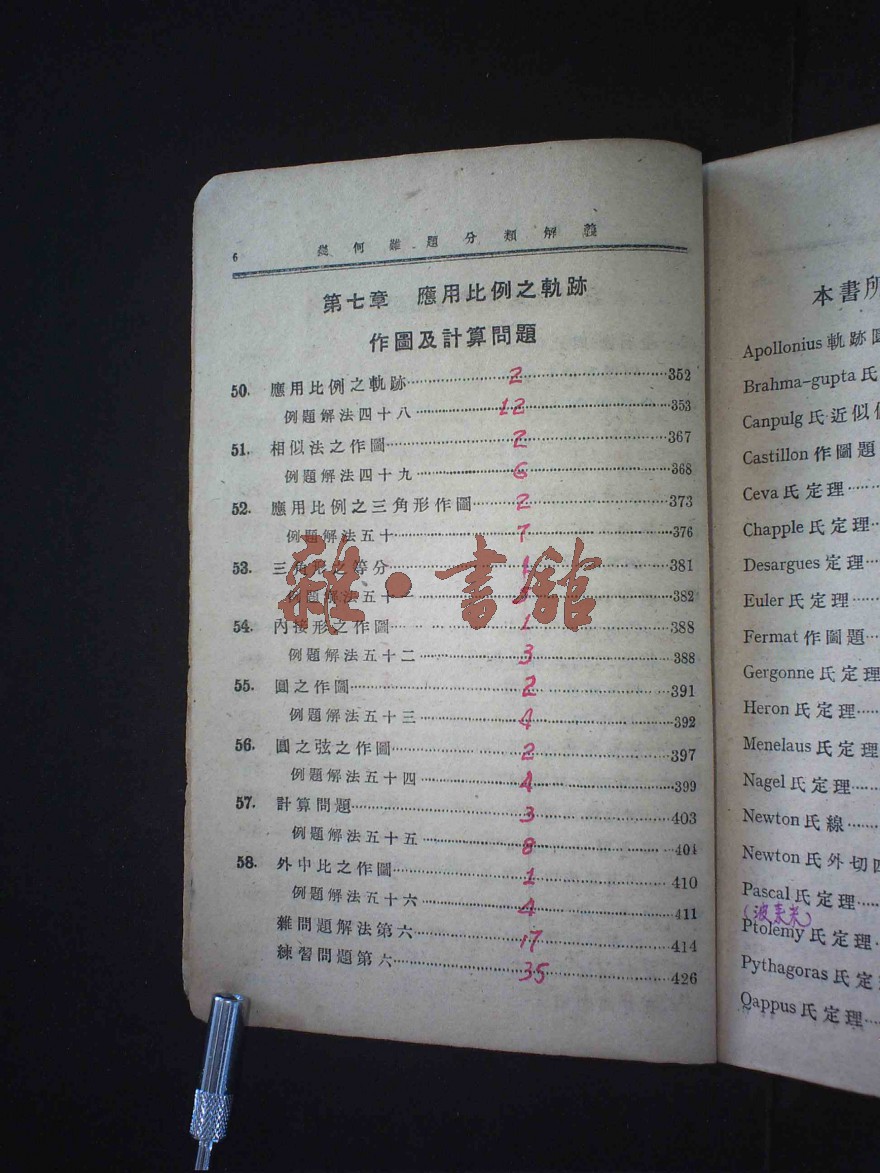 6 幾何難題分類解義
第七章 應用比例之軌跡
作圖及計算問題
50. 應用比例之軌跡 2 352
例題解法四十八 12 353
51. 相似法之作圖 2 367
例題解法四十九 6 368
52. 應用比例之三角形作圖 2 373
例題解法五十 7 376
53. 三角形之等分 1 381
例題解法五十一 382
54. 內接形之作圖 1 388
例題解法五十二 3 388
55. 圓之作圖 2 391
例題解法五十三 4 392
56. 圓之弦之作圖 2 397
例題解法五十四 4 399
57. 計算問題 3 403
例題解法五十五 8 404
58. 外中比之作圖 1 410
例題解法五十六 4 411
雜問題解法第六 17 414
練習問題第六 35 426
雜·書館
本書所
Apollonius 軌跡圓
Brahma-gupta 氏
Canpulg 氏近似
Castillon 作圖題
Ceva 氏定理
Chapple 氏定理
Desargues 定理
Euler 氏定理
Fermat 作圖題
Gergonne 氏定理
Heron 氏定理
Menelaus 氏定理
Nagel 氏定理
Newton 氏線
Newton 氏外切四
Pascal 氏定理
Ptolemy 氏定理
Pythagoras 氏定
Qappus 氏定理